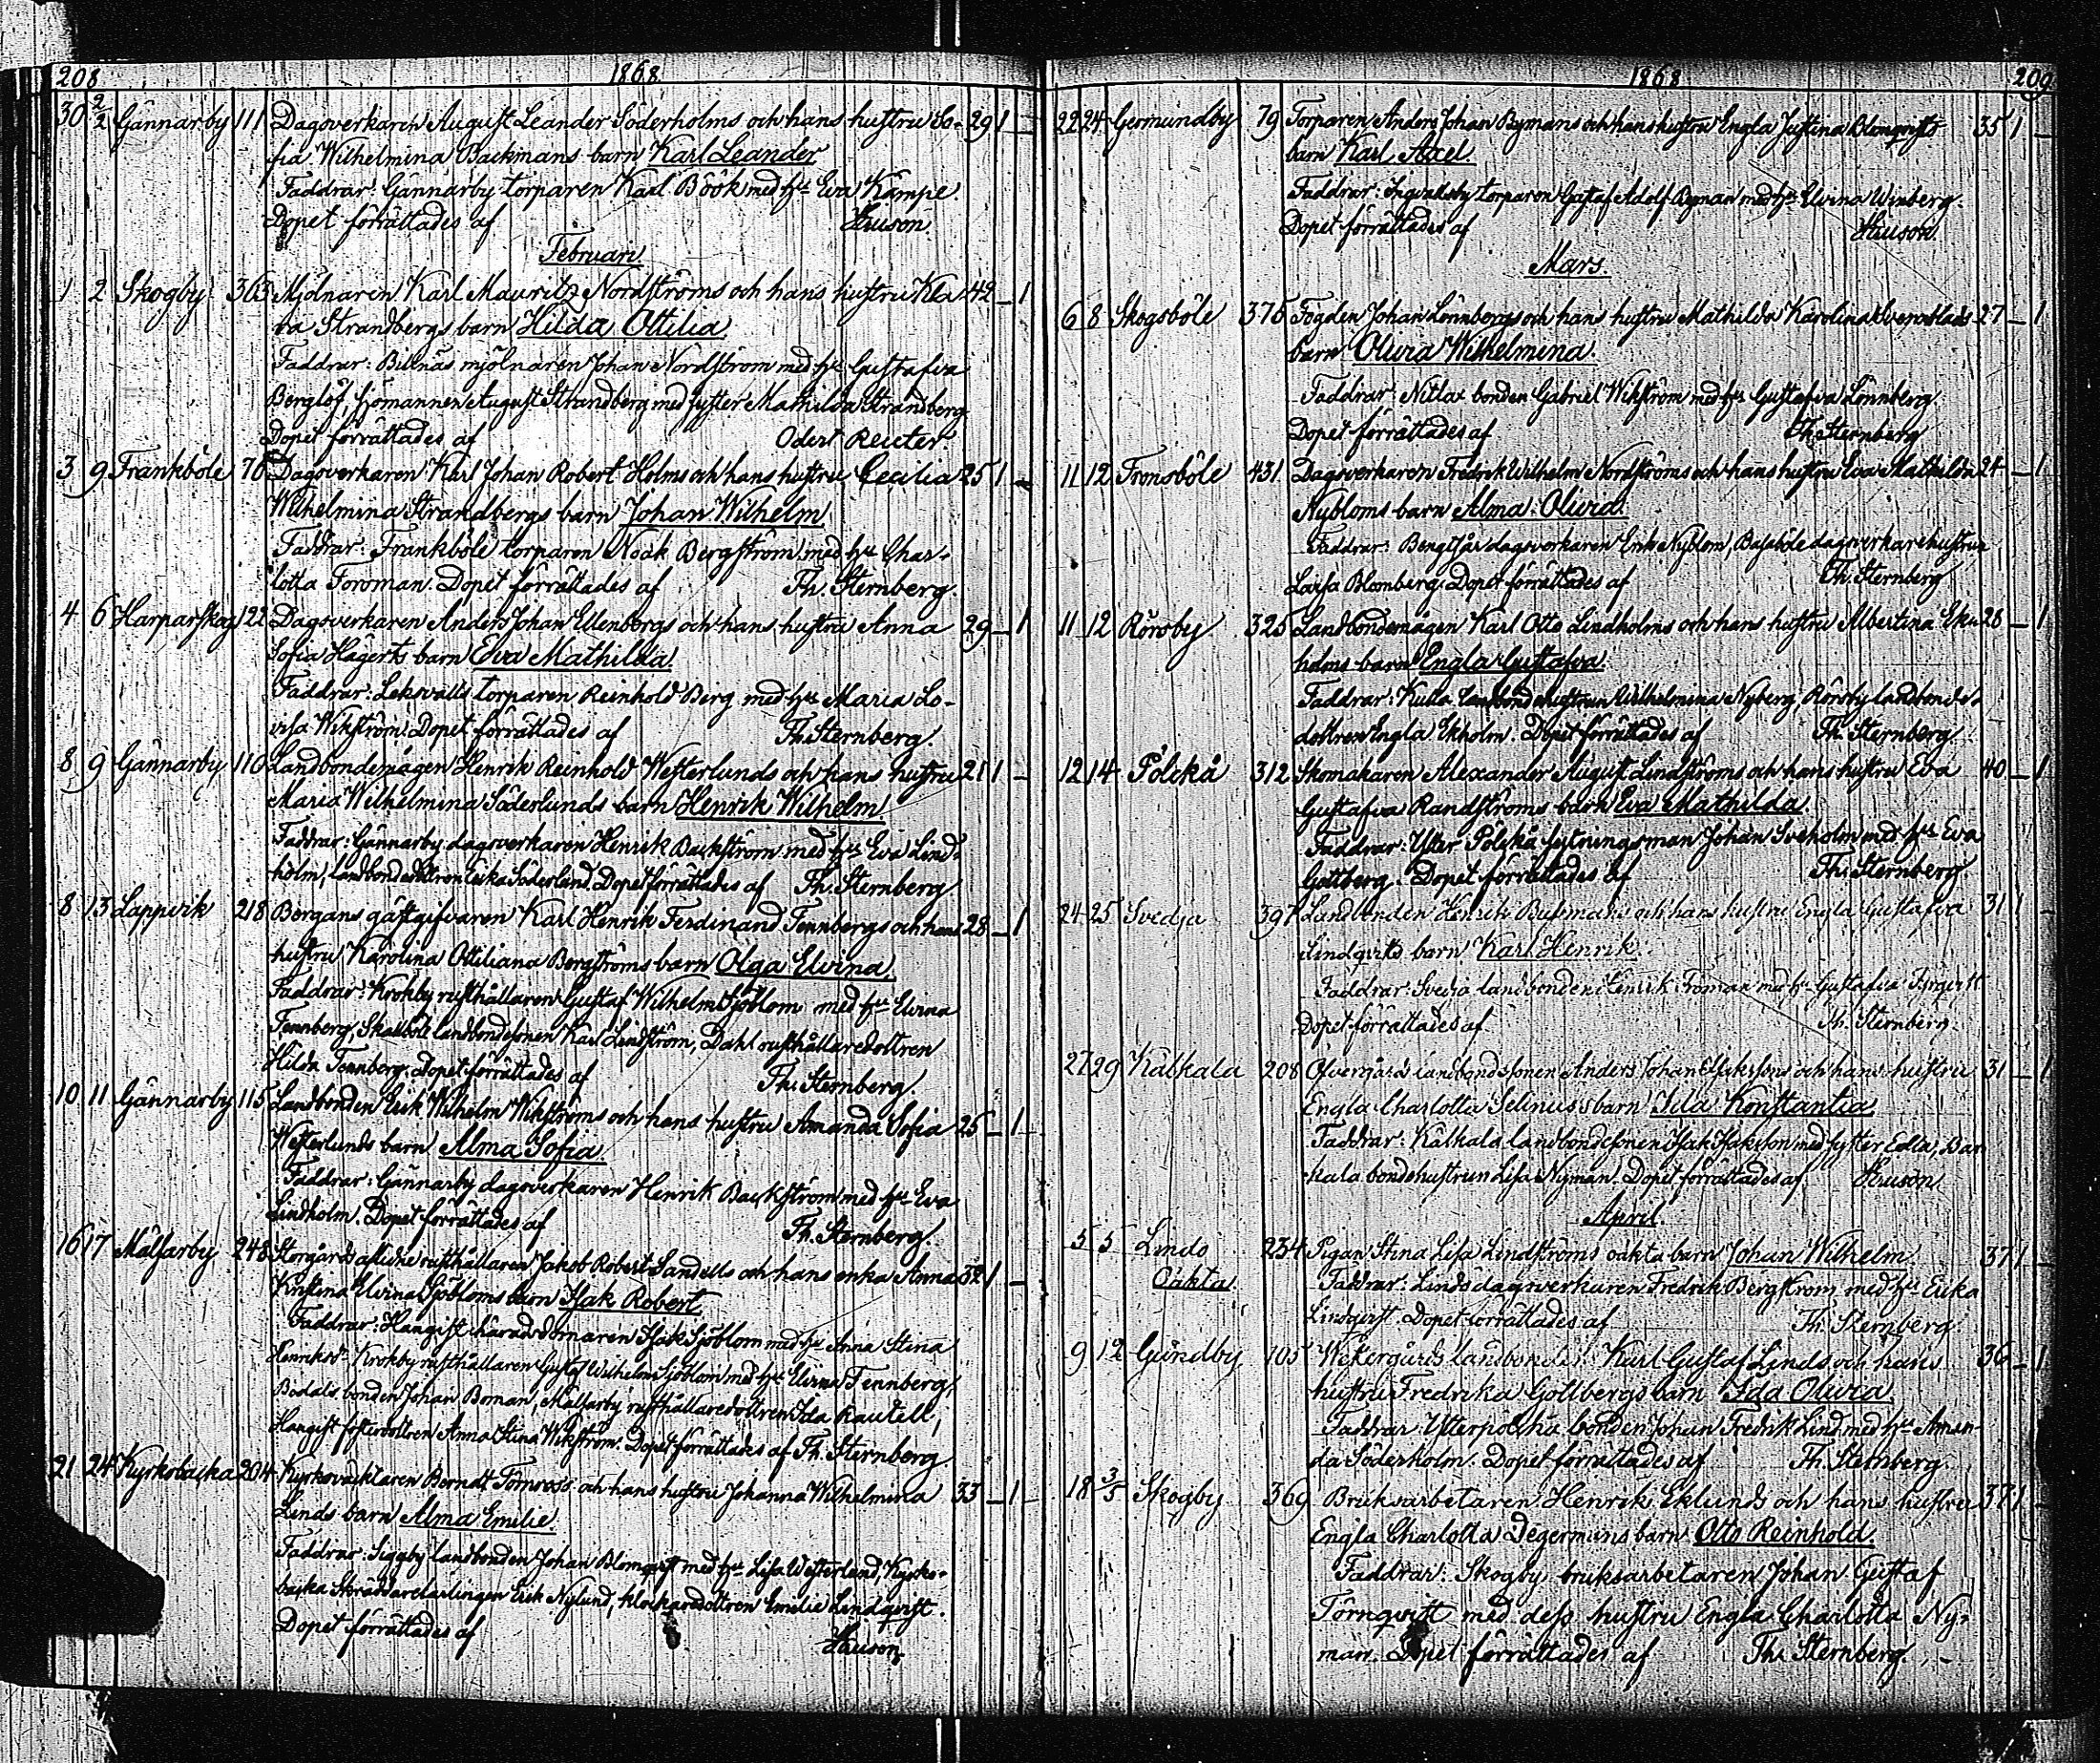 208 1868
30 2/2 Gännarby 111 Dagsverkaren August Leander Söderholms och hans hustru So- 29 1 –
fia Wilhelmina Backmans barn Karl Leander
Faddrar: Gännarby torparen Karl Böök med hu Eva Kämpe.
Dopet förrättades af
Februari
1 2 Skogby 363 Mjölnaren Karl Mauritz Nordströms och hans hustru Kla- 42 – 1
ra Strandbergs barn Hilda Ottilia
Faddrar: Billnäs mjölnaren Johan Nordström med hu Gustafva
Berglöf, sjömannen August Strandberg med syster Mathilda Strandberg
Dopet förrättades af Odert Reuter.
3 9 Frankböle 76 Dagsverkaren Karl Johan Robert Holms och hans hustru Cecilia 25 1 –
Wilhelmina Strandbergs barn Johan Wilhelm
Faddrar: Frankböle torparen Noak Bergström med hu Char-
lotta Forsman. Dopet förrättades af Th. Sternberg.
4 6 Harparskog 122 Dagsverkaren Anders Johan Ellenbergs och hans hustru Anna 29 – 1
Sofia Hägerts barn Eva Mathilda.
Faddrar: Leksvalls torparen Reinhold Berg med hu Maria Lo-
visa Wikström. Dopet förrättades af Th. Sternberg.
8 9 Gännarby 110 Landbondemågen Henrik Reinhold Westerlunds och hans hustru 21 1 –
Maria Wilhelmina Söderlunds barn Henrik Wilhelm
Faddrar: Gännarby dagsverkaren Henrik Backström med hu Eva Lind-
holm, landbondedottren Erika Söderlund. Dopet förrättades af Th. Sternberg.
8 13 Lappvik 218 Bergans gästgifvaren Karl Henrik Ferdinand Fennbergs och hans 28 – 1
hustru Karolina Ottiliana Bergströms barn Olga Elvina
Faddrar: Krokby rusthållaren Gustaf Wilhelm Sjöblom med hu Elvina
Fennberg, Skallböle landbondesonen Karl Lindström, Dahl rusthållaredottren
Hilda Fennberg. Dopet förrättades af Th. Sternberg.
10 11 Gännarby 115 Landbonden Erik Wilhelm Wikströms och hans hustru Amanda Sofia 25 – 1
Westerlunds barn Alma Sofia.
Faddrar: Gännarby dagsverkaren Henrik Backström med hu Eva
Lindholm. Dopet förrättades af Th. Sternberg.
16 17 Malfarby 248 Storgårds aflidne rusthållaren Jakob Robert Sandells och hans enka Anna 32 1 –
Kristina Elvina Sjöbloms barn Isak Robert.
Faddrar: Hangist häradsdomaren Isak Sjöblom med hu Anna Stina
Henriksdr Krokby rusthållaren Gustaf Wilhelm Sjöblom med hu Elvina Fennberg,
bonden Johan Boman, Malfarby rusthållaredottren Ida Rautell,
Hangist fosterdottren Anna Stina Wikström. Dopet förrättades af Th. Sternberg
21 24 Kyrkobacka 204 Kyrkovaktaren Berndt Törnroos och hans hustru Johanna Wilhelmina 33 – 1
Linds barn Alma Emilie.
Faddrar: Siggby landbonden Johan Blomqvist med hu Lisa Westerlund, Kyrko-
backa skräddarelärlingen Erik Nylund, klockaredottren Emilie Lindqvist.
Dopet förrättades af
1868 209
22 24 Germundby 79 Torparen Anders Johan Bymans och hans hustru Engla Justina Blomqvists 35 1 –
barn Karl Axel.
Faddrar: Ingvallsby torparen Gustaf Adolf Byman med hu Elvina Winberg.
Dopet förrättades af
Mars.
6 8 Skogsböle 376 Fogden Johan Lönnbergs och hans hustru Mathilda Karolina Svensblads 27 – 1
barn Olivia Wilhelmina.
Faddrar: Nitlax bonden Gabriel Wikström med hu Gustafva Lönnberg.
Dopet förrättades af Th. Sternberg
11 12 Tronsböle 431 Dagsverkaren Fredrik Wilhelm Nordströms och hans hustru Eva Mathilda 24 – 1
Nybloms barn Alma Olivia.
Faddrar: Bengtsår dagsverkaren Erik Nyblom, Basaböle dagsverkarehustrun
Lovisa Blomberg. Dopet förrättades af Th. Sternberg
11 12 Rörsby 325 Landbondemågen Karl Otto Lindholms och hans hustru Albertina Ek- 28 – 1
holms barn Engla Gustafva.
Faddrar: Kulla landbondehustrun Wilhelmina Nyberg, Rörsby landbonde-
dottren Engla Ekholm. Dopet förrättades af Th. Sternberg
12 14 Pölckå 312 Skomakaren Alexander August Lindströms och hans hustru Eva 40 – 1
Gustafva Randströms barn Eva Mathilda.
Faddrar: Ytter Pölckå sytningsman Johan Sveholm med hu Eva
Gottberg. Dopet förrättades af Th. Sternberg
24 25 Svedja 397 Landbonden Henrik Busmans och hans hustru Engla Gustafva 31 1 –
Lindqvists barn Karl Henrik.
Faddrar: Svedja landbonden Henrik Froman med hu Gustafva
Dopet förrättades af Th. Sternberg.
27 29 Källkala 208 Öfvergårds landbondesonen Anders Johan Isakssons och hans hustru 31 – 1
Engla Charlotta Selinus's barn Ida Konstantia
Faddrar: Källkala landbondesonen Isak Isaksson med syster Edla, Bar-
kala bondehustrun Lisa Nyman. Dopet förrättades af
April.
5 5 Lindö 234 Pigan Stina Lisa Lindströms oäkta barn Johan Wilhelm 37 1 –
Oäkta. Faddrar: Lindö dagsverkaren Fredrik Bergström med hu Erika
Lindqvist. Dopet förrättades af Th. Sternberg
9 12 Gundby 105 Westergårds landbonden Karl Gustaf Linds och hans 36 – 1
hustru Fredrika Gottbergs barn Ida Olivia
Faddrar Ytterpölckå bonden Johan Fredrik Lind med hu Aman-
da Söderholm. Dopet förrättades af Th. Sternberg.
18 3/5 Skogby 369 Bruksarbetaren Henrik Eklunds och hans hustru 37 1 –
Engla Charlotta Degermans barn Otto Reinhold.
Faddrar: Skogby bruksarbetaren Johan Gustaf
Törnqvist med dess hustru Engla Charlotta Ny-
man. Dopet förrättades af Th. Sternberg.